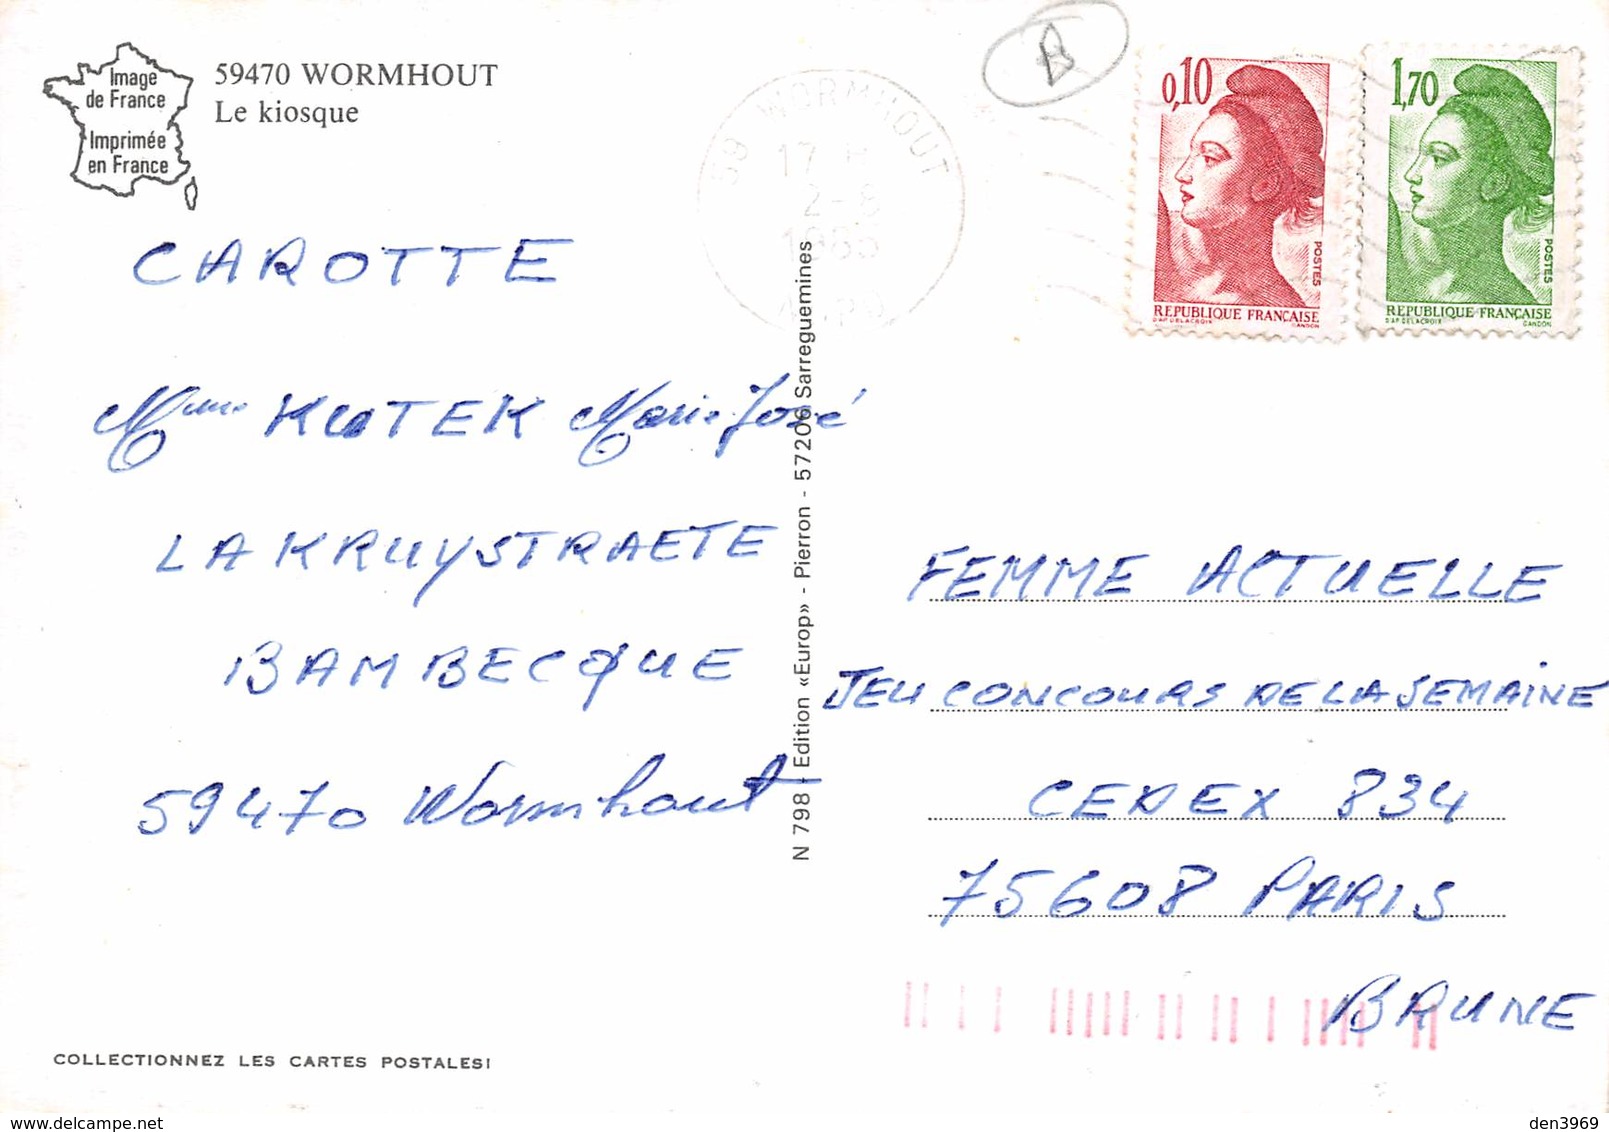 Image
de France
Imprimée
en France
59470 WORMHOUT
Le kiosque
59 WORMHOUT
17 H
2-8
1985
0,10
POSTES
REPUBLIQUE FRANÇAISE
D'AP DELACROIX GANDON
1,70
POSTES
REPUBLIQUE FRANÇAISE
D'AP DELACROIX GANDON
CAROTTE
Mme Marie José
LA KRUYSTRAETE
BAMBECQUE
59470 Wormhout
N 798 - Edition «Europ» - Pierron - 57206 Sarreguemines
FEMME ACTUELLE
JEU CONCOURS DE LA SEMAINE
CEDEX 834
75608 PARIS
BRUNE
COLLECTIONNEZ LES CARTES POSTALES!
www.delcampe.net
den3969